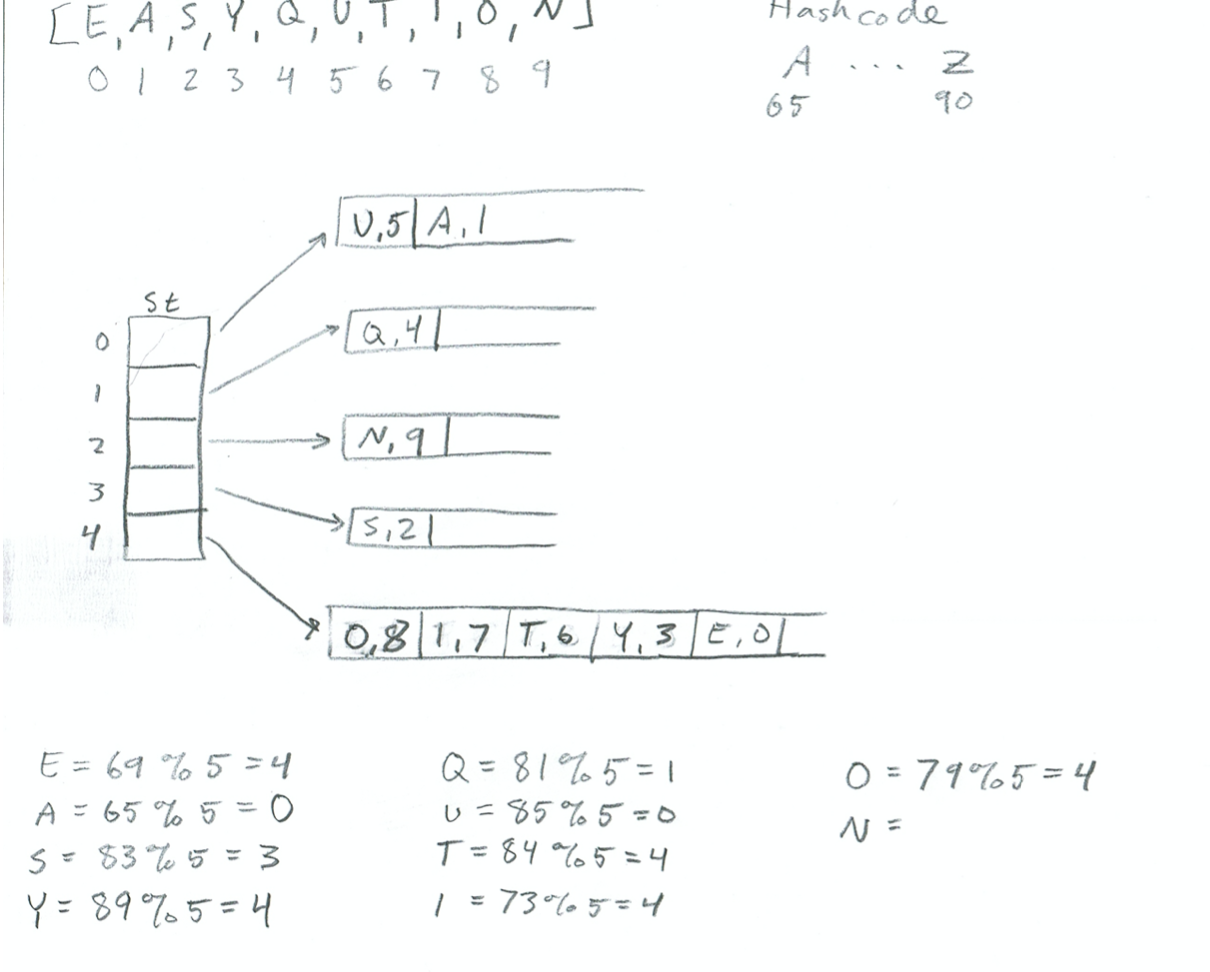 [E, A, S, Y, Q, U, T, I, O, N]
0 1 2 3 4 5 6 7 8 9
Hashcode
A ... Z
65 90
U,5 A,1
st
0
Q,4
1
2
N,9
3
S,2
4
O,8 I,7 T,6 Y,3 E,0
E = 69 % 5 = 4
A = 65 % 5 = 0
S = 83 % 5 = 3
Y = 89 % 5 = 4
Q = 81 % 5 = 1
U = 85 % 5 = 0
T = 84 % 5 = 4
I = 73 % 5 = 4
O = 79 % 5 = 4
N =